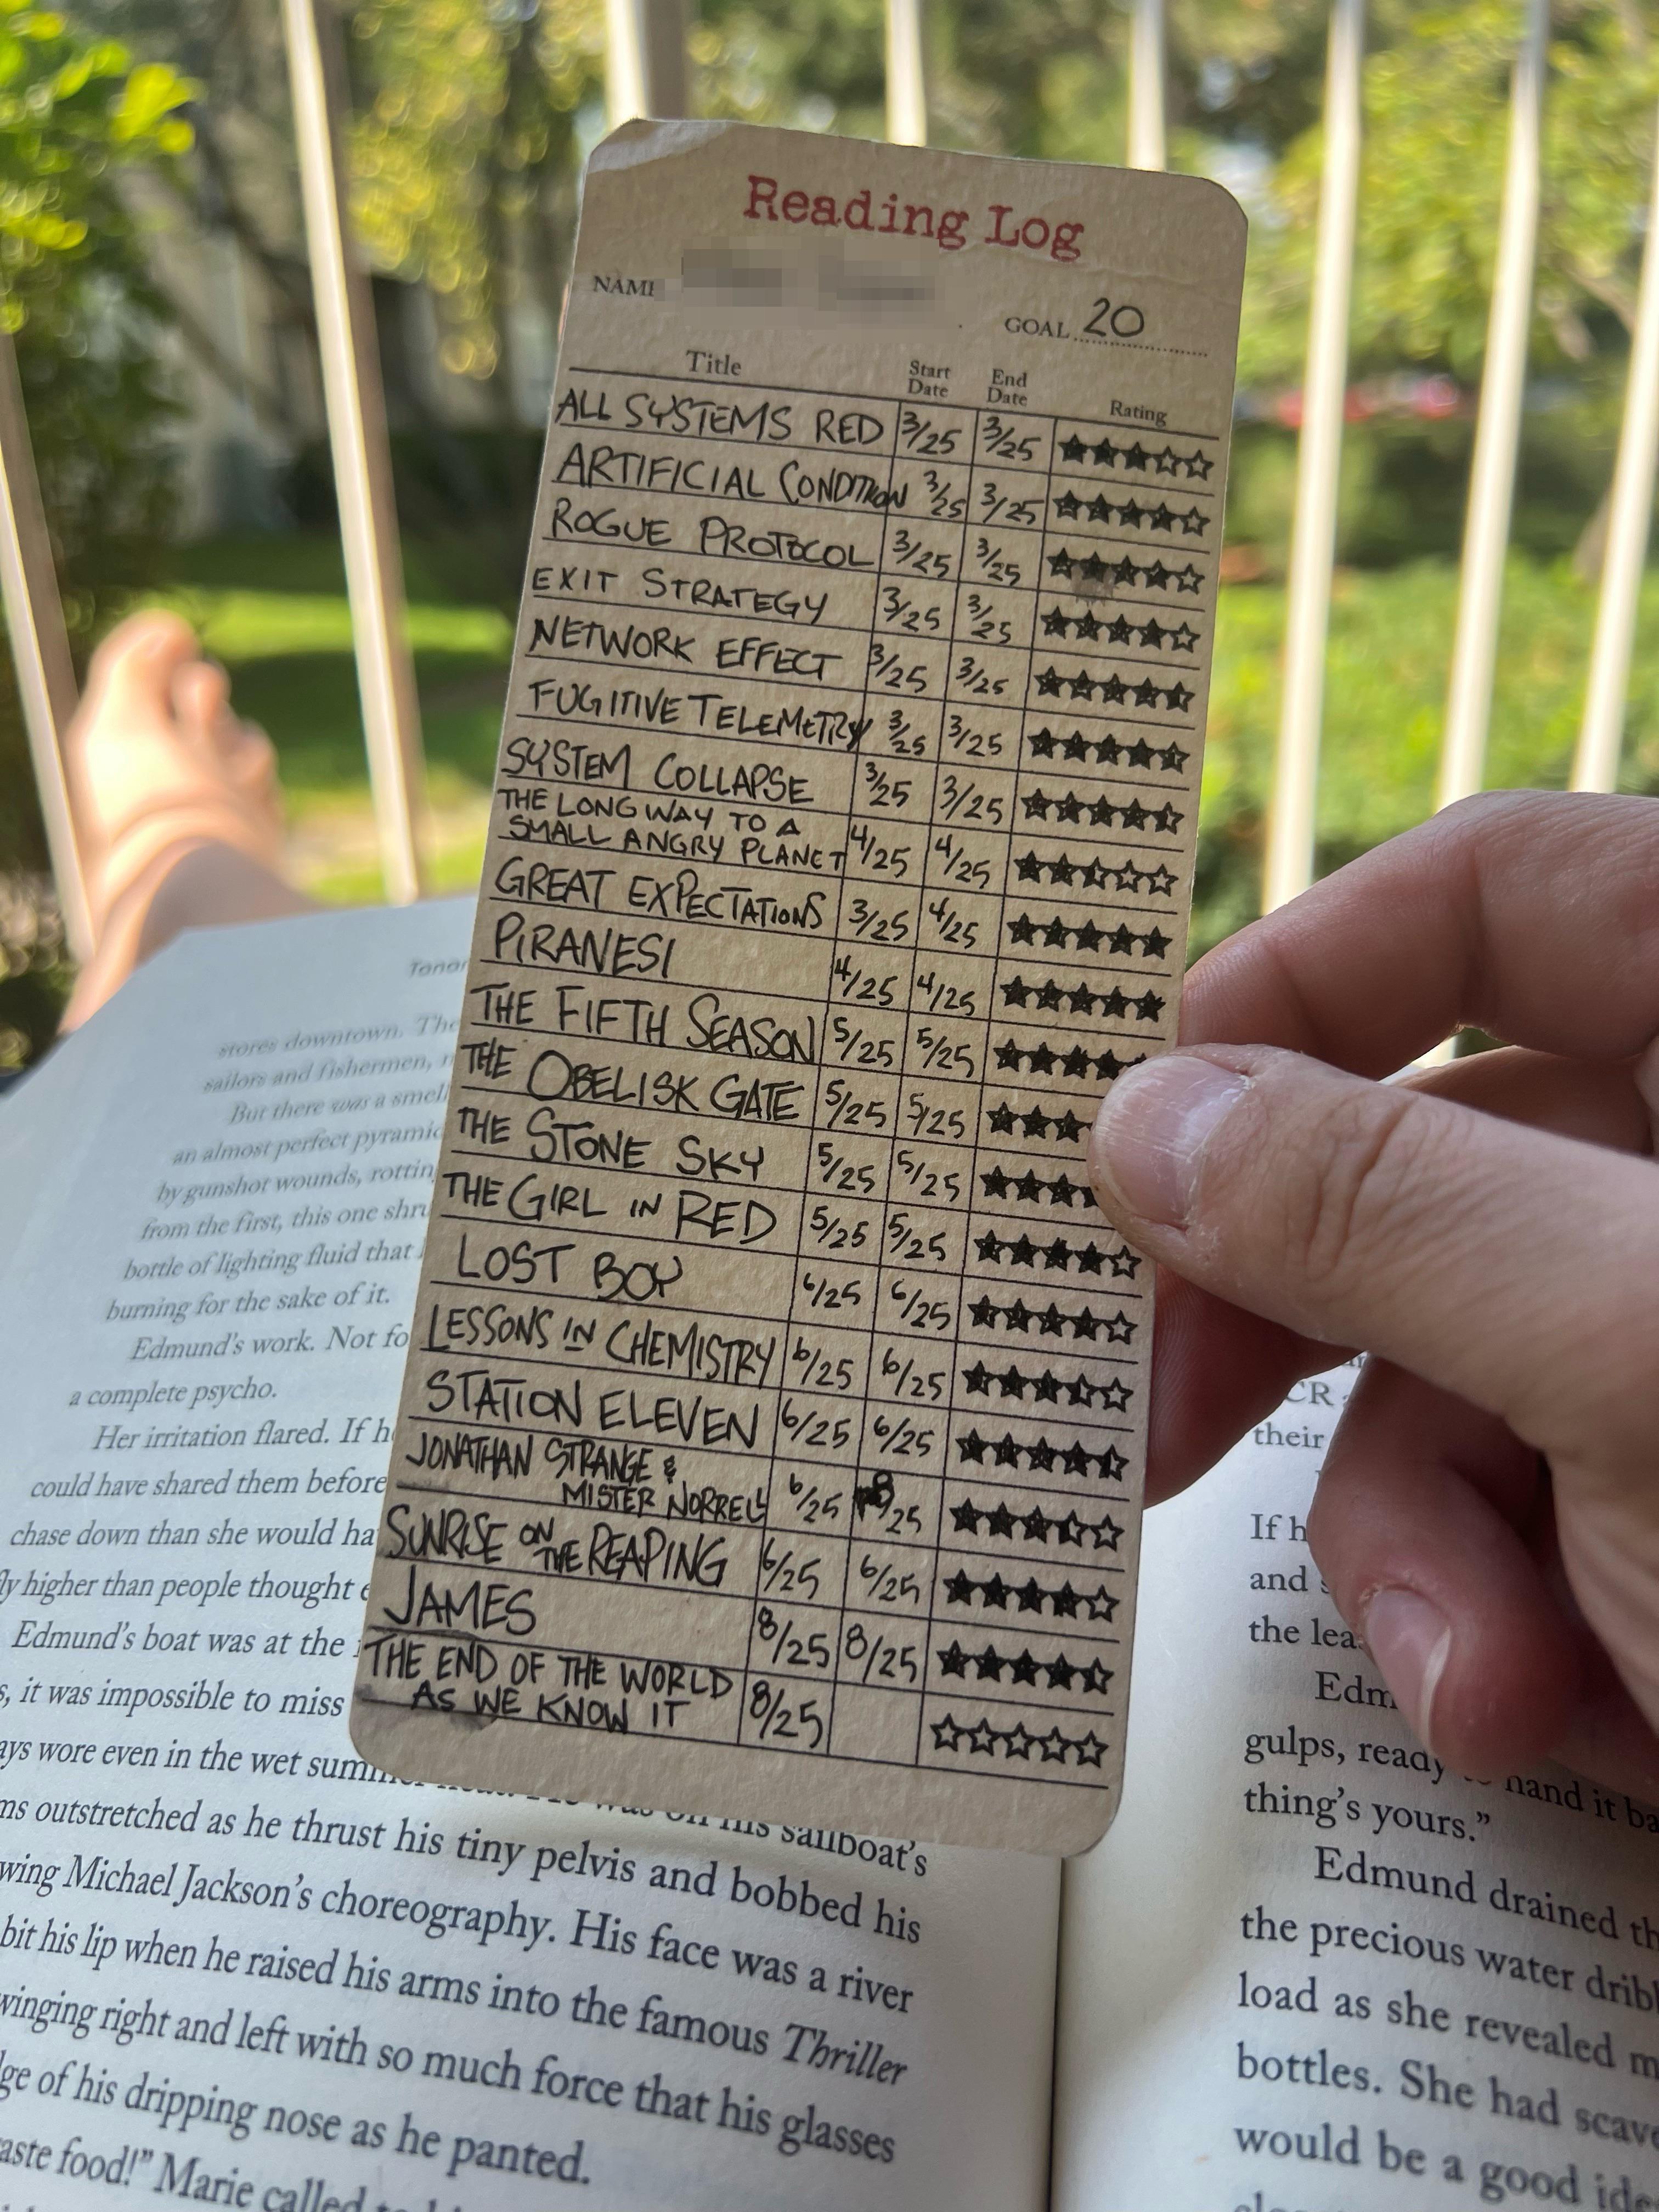 Reading Log
NAME
GOAL 20
Title Start Date End Date Rating
ALL SYSTEMS RED 3/25 3/25
ARTIFICIAL CONDITION 3/25 3/25
ROGUE PROTOCOL 3/25 3/25
EXIT STRATEGY 3/25 3/25
NETWORK EFFECT 3/25 3/25
FUGITIVE TELEMETRY 3/25 3/25
SYSTEM COLLAPSE 3/25 3/25
THE LONG WAY TO A
SMALL ANGRY PLANET 4/25 4/25
GREAT EXPECTATIONS 3/25 4/25
PIRANESI 4/25 4/25
THE FIFTH SEASON 5/25 5/25
THE OBELISK GATE 5/25 5/25
THE STONE SKY 5/25 5/25
THE GIRL IN RED 5/25 5/25
LOST BOY 6/25 6/25
LESSONS IN CHEMISTRY 6/25 6/25
STATION ELEVEN 6/25 6/25
JONATHAN STRANGE &
MISTER NORRELL 6/25 8/25
SUNRISE ON THE REAPING 6/25 6/25
JAMES 8/25 8/25
THE END OF THE WORLD
AS WE KNOW IT 8/25
stores downtown. The
sailors and fishermen,
But there was a smell
an almost perfect pyramid
by gunshot wounds, rotting
from the first, this one
bottle of lighting fluid that
burning for the sake of it.
Edmund's work. Not
a complete psycho.
Her irritation flared. If
could have shared them before
chase down than she would
higher than people thought
Edmund's boat was at the
it was impossible to miss
wore even in the wet
He was on his sailboat's
outstretched as he thrust his tiny pelvis and bobbed his
Michael Jackson's choreography. His face was a river
bit his lip when he raised his arms into the famous Thriller
right and left with so much force that his glasses
of his dripping nose as he panted.
food!" Marie called
CR
their
If
and
the
gulps, ready to hand it
thing's yours."
Edmund drained
the precious water
load as she revealed
bottles. She had
would be a good